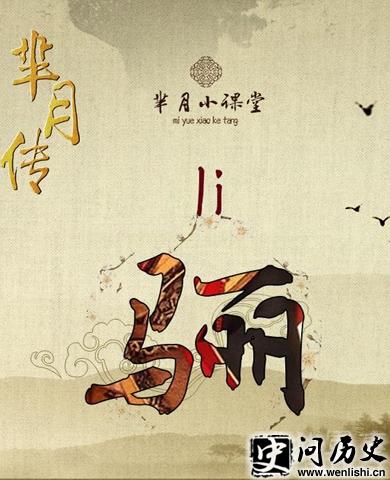 芈月传
芈月小课堂
mi yue xiao ke tang
li
骊
史问历史
www.wenlishi.cn